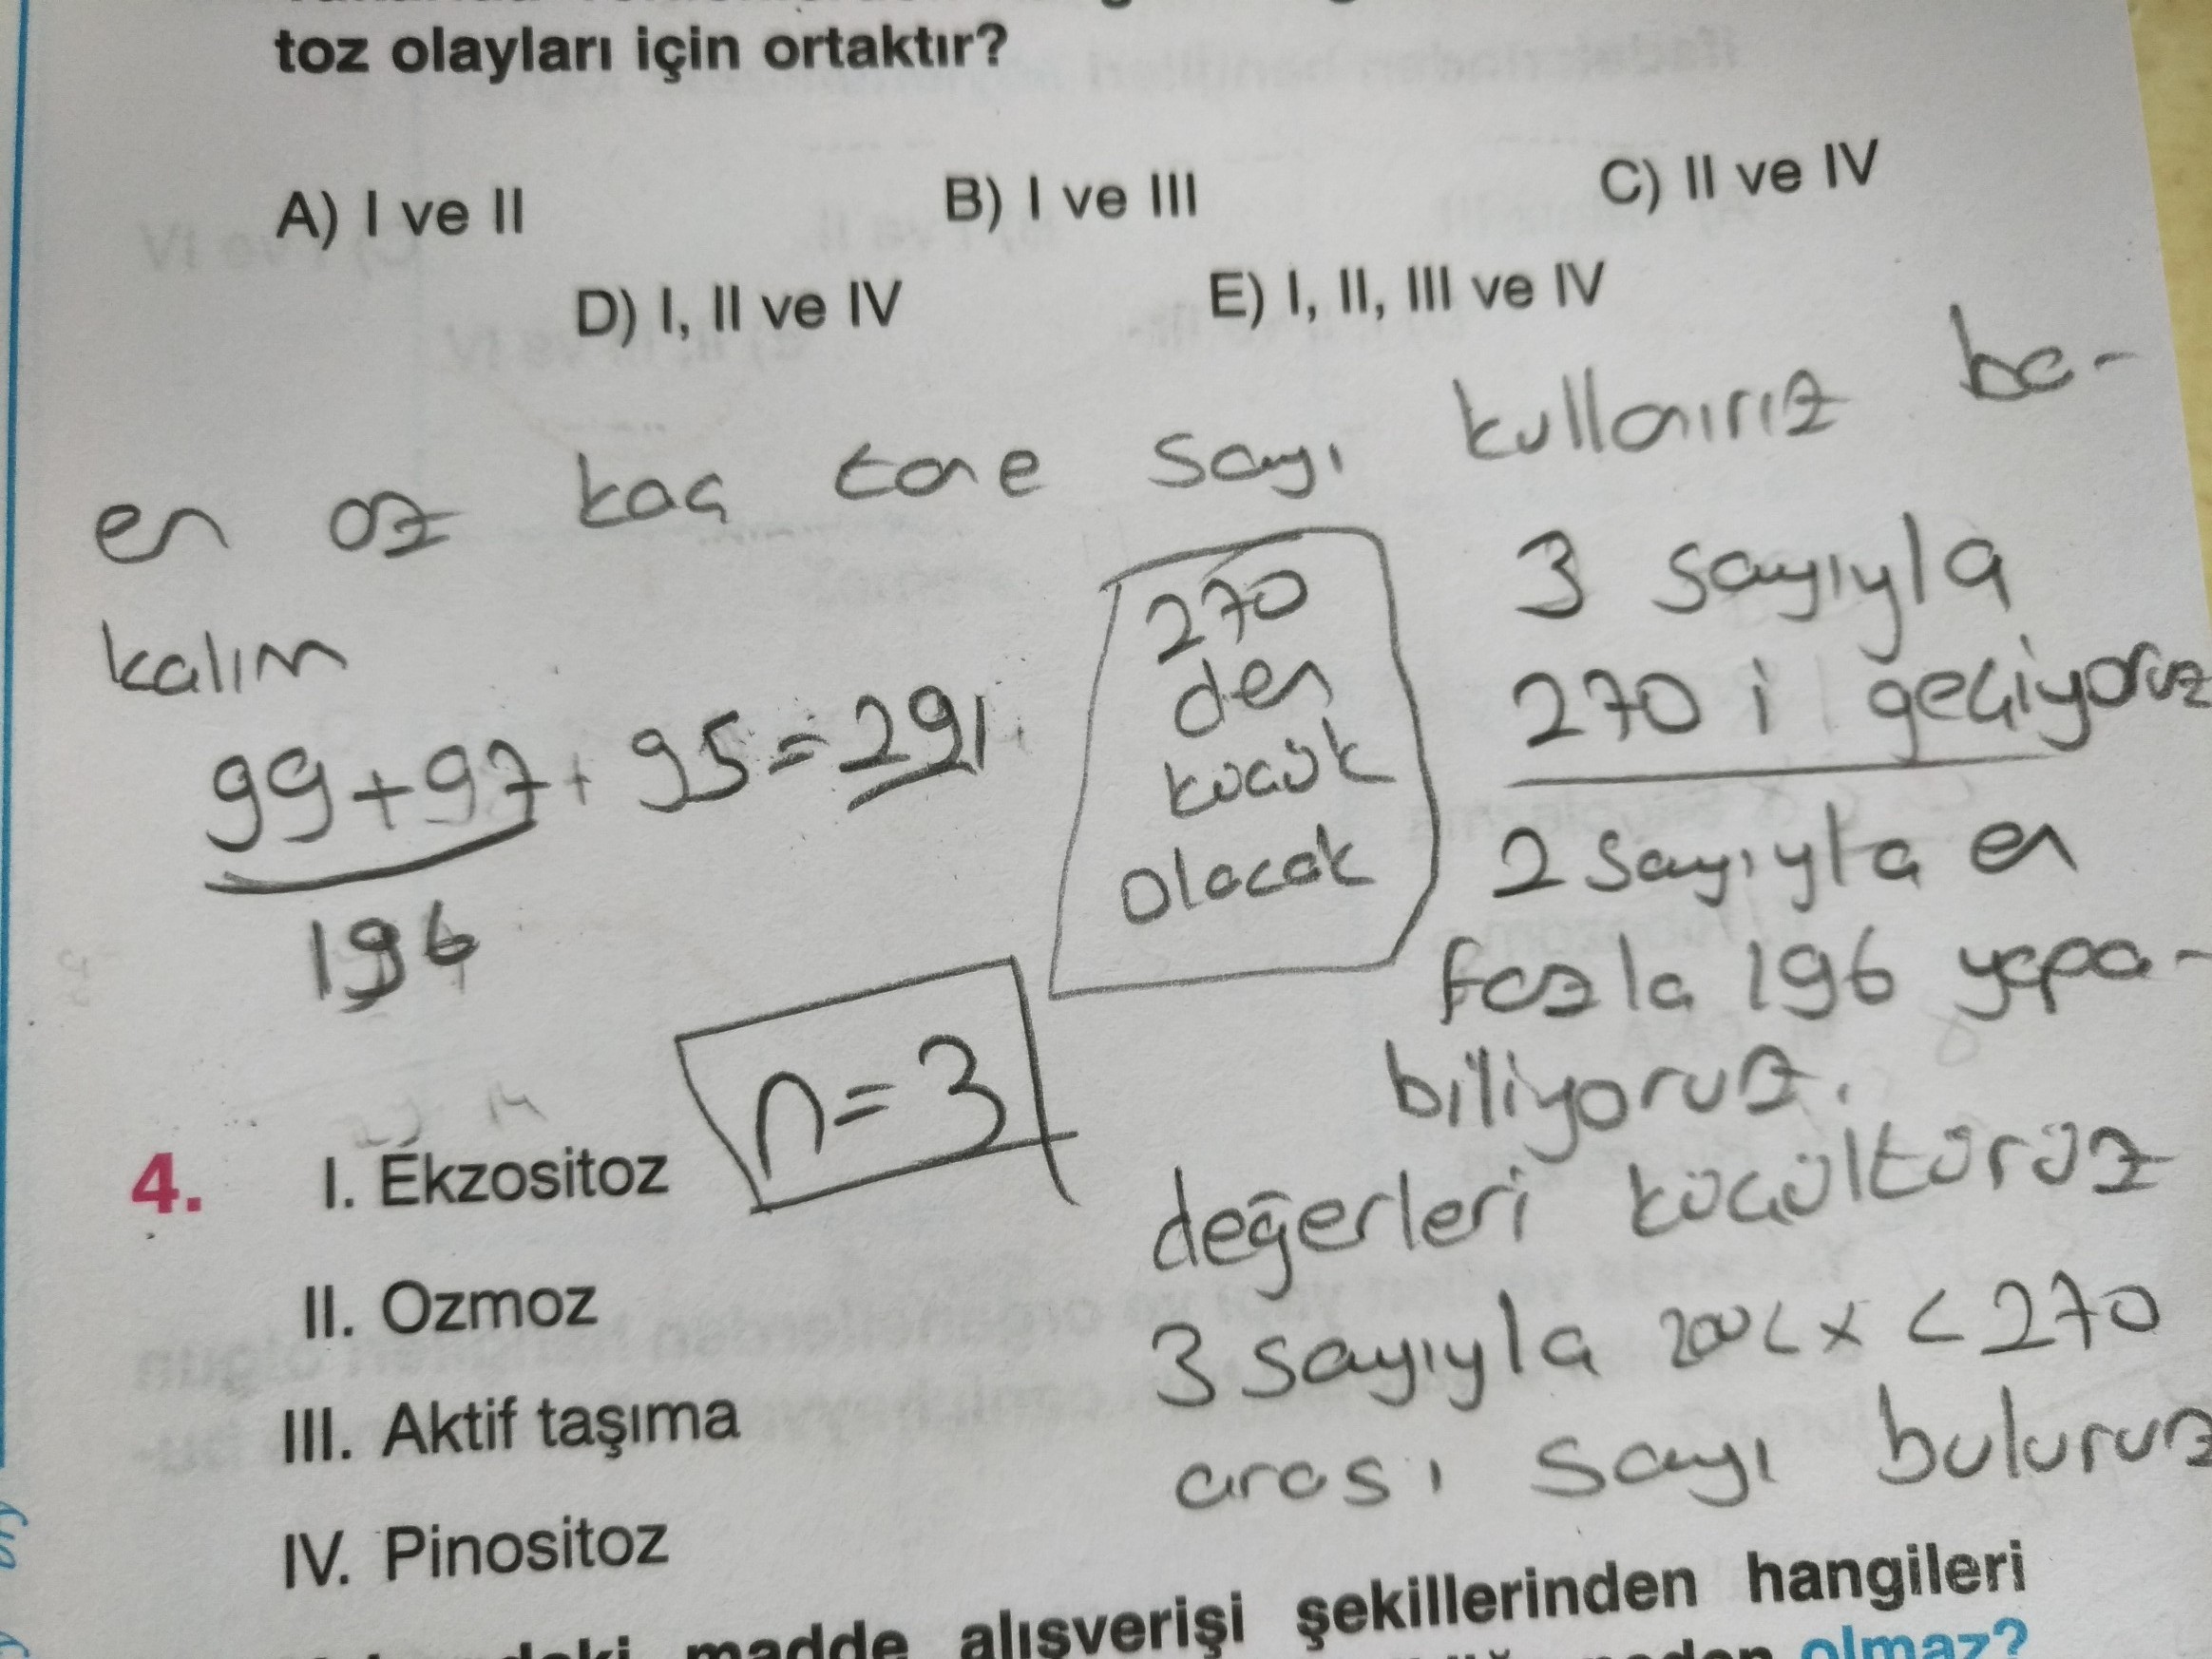 toz olayları için ortaktır?
A) I ve II B) I ve III C) II ve IV
D) I, II ve IV E) I, II, III ve IV
en az kaç tane sayı kullanırız ba-
kalım
99+97+95=291
196
270
den
küçük
olacak
n=3
3 sayıyla
270 i geçiyoruz
2 sayıyla en
fazla 196 yapa-
biliyoruz.
değerleri küçültürüz
3 sayıyla 200<x<270
arası sayı buluruz
4. I. Ekzositoz
II. Ozmoz
III. Aktif taşıma
IV. Pinositoz
madde alışverişi şekillerinden hangileri
neden olmaz?